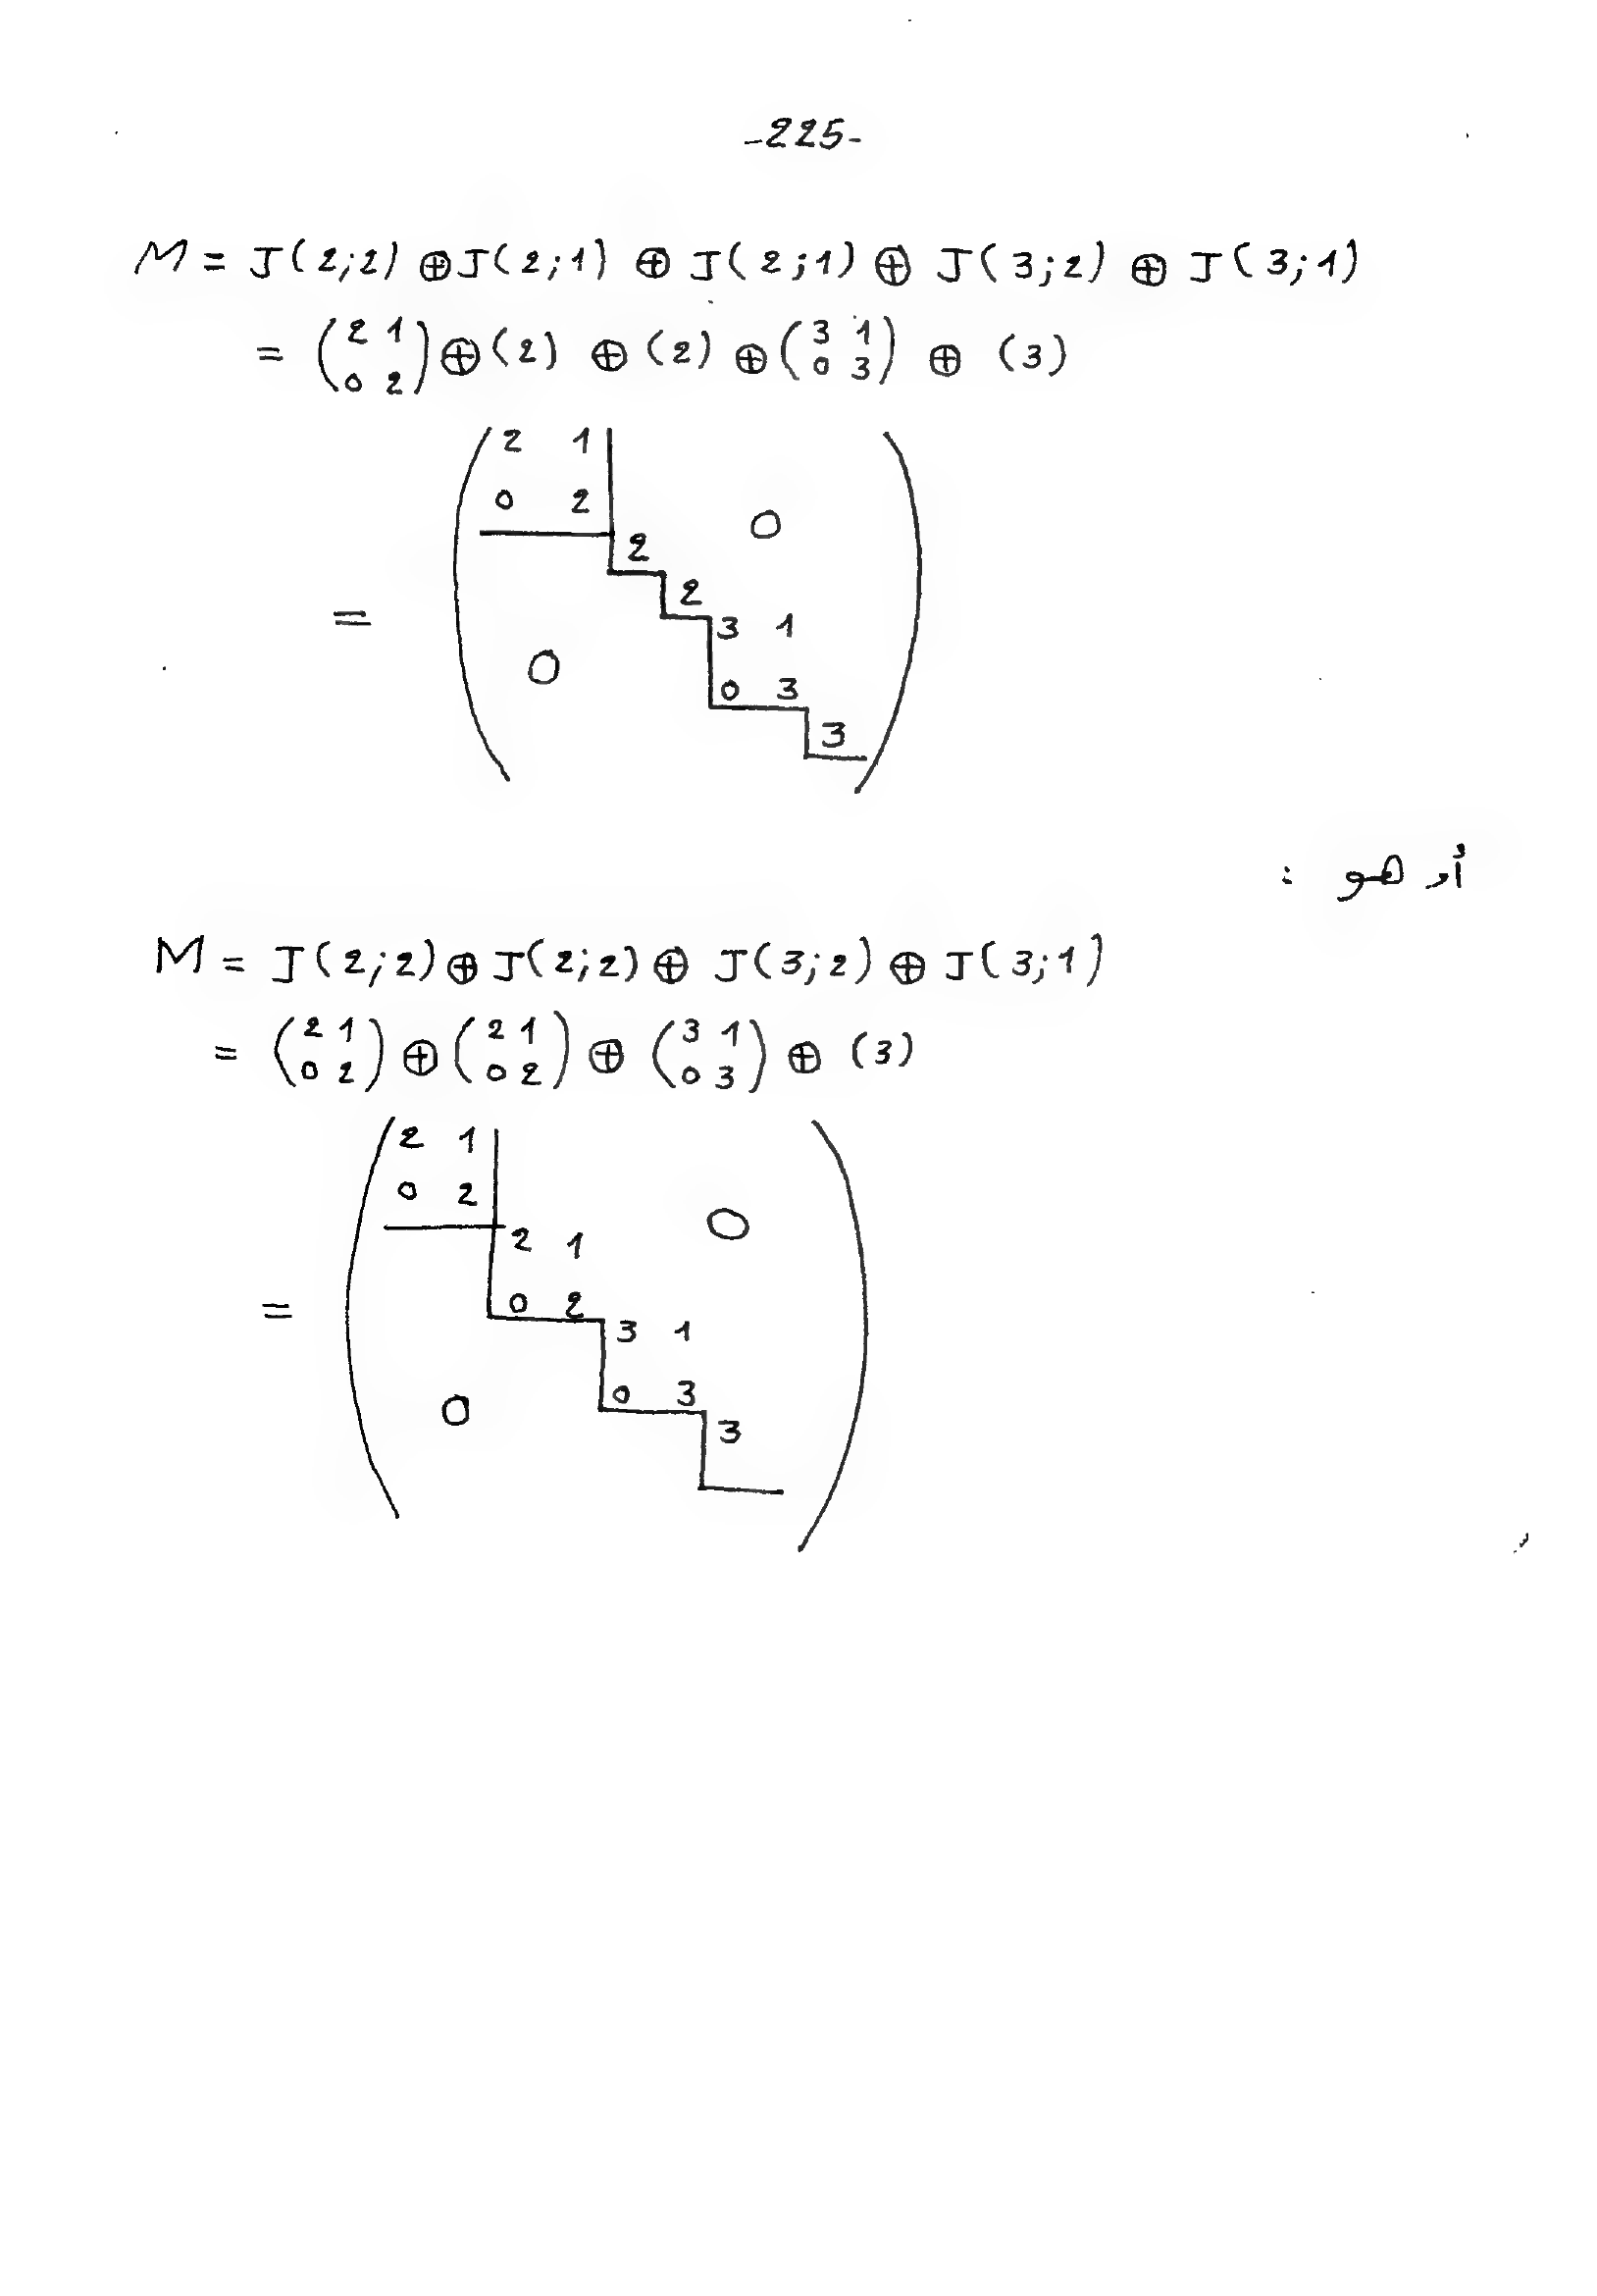 -225-
M = J(2;2) ⊕ J(2;1) ⊕ J(2;1) ⊕ J(3;2) ⊕ J(3;1)
= (2 1
0 2) ⊕ (2) ⊕ (2) ⊕ (3 1
0 3) ⊕ (3)
= (2 1
0 2 0
2
2
3 1
0 0 3
3)
أو هو :
M = J(2;2) ⊕ J(2;2) ⊕ J(3;2) ⊕ J(3;1)
= (2 1
0 2) ⊕ (2 1
0 2) ⊕ (3 1
0 3) ⊕ (3)
= (2 1
0 2 0
2 1
0 2
3 1
0 0 3
3)